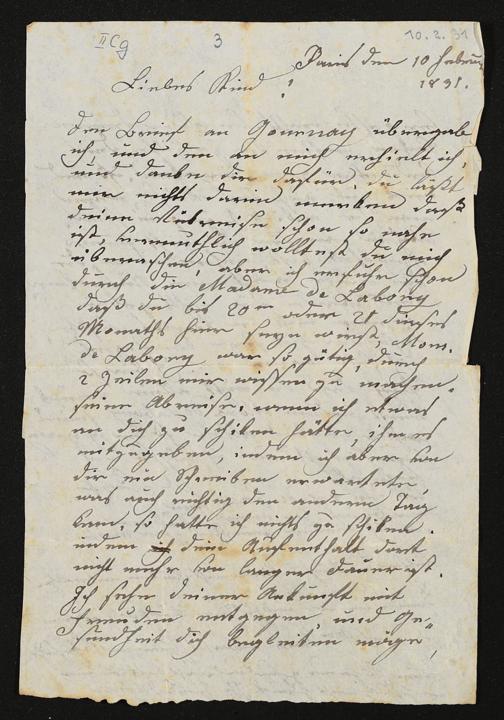 II Cg 3 10.2.31
Paris den 10 Februar
1831.
Liebes Kind!
den Brief an Gournay übergab
ich und den an mich erhielt ich,
und danke dir dafür, du läßt
mir nichts darin merken daß
deine Rükreise schon so nahe
ist, vermuthlich wolltest du mich
überraschen, aber ich erfuhr schon
durch die Madame de Labory
daß du bis 20ten oder 21 dieses
Monaths hier seyn wirst, Mons.
de Labory war so gütig, durch
2 Zeilen mir wissen zu machen
seine Abreise, wenn ich etwas
an dich zu schiken hätte, ihm es
mitzugeben, indem ich aber von
dir ein Schreiben erwartete,
was auch richtig den andern Tag
kam, so hatte ich nichts zu schiken.
indem dein Aufenthalt dort
nicht mehr von langer Dauer ist.
Ich sehe deiner Ankunft mit
Freuden entgegen, und Ge-
sundheit dich begleiten möge,